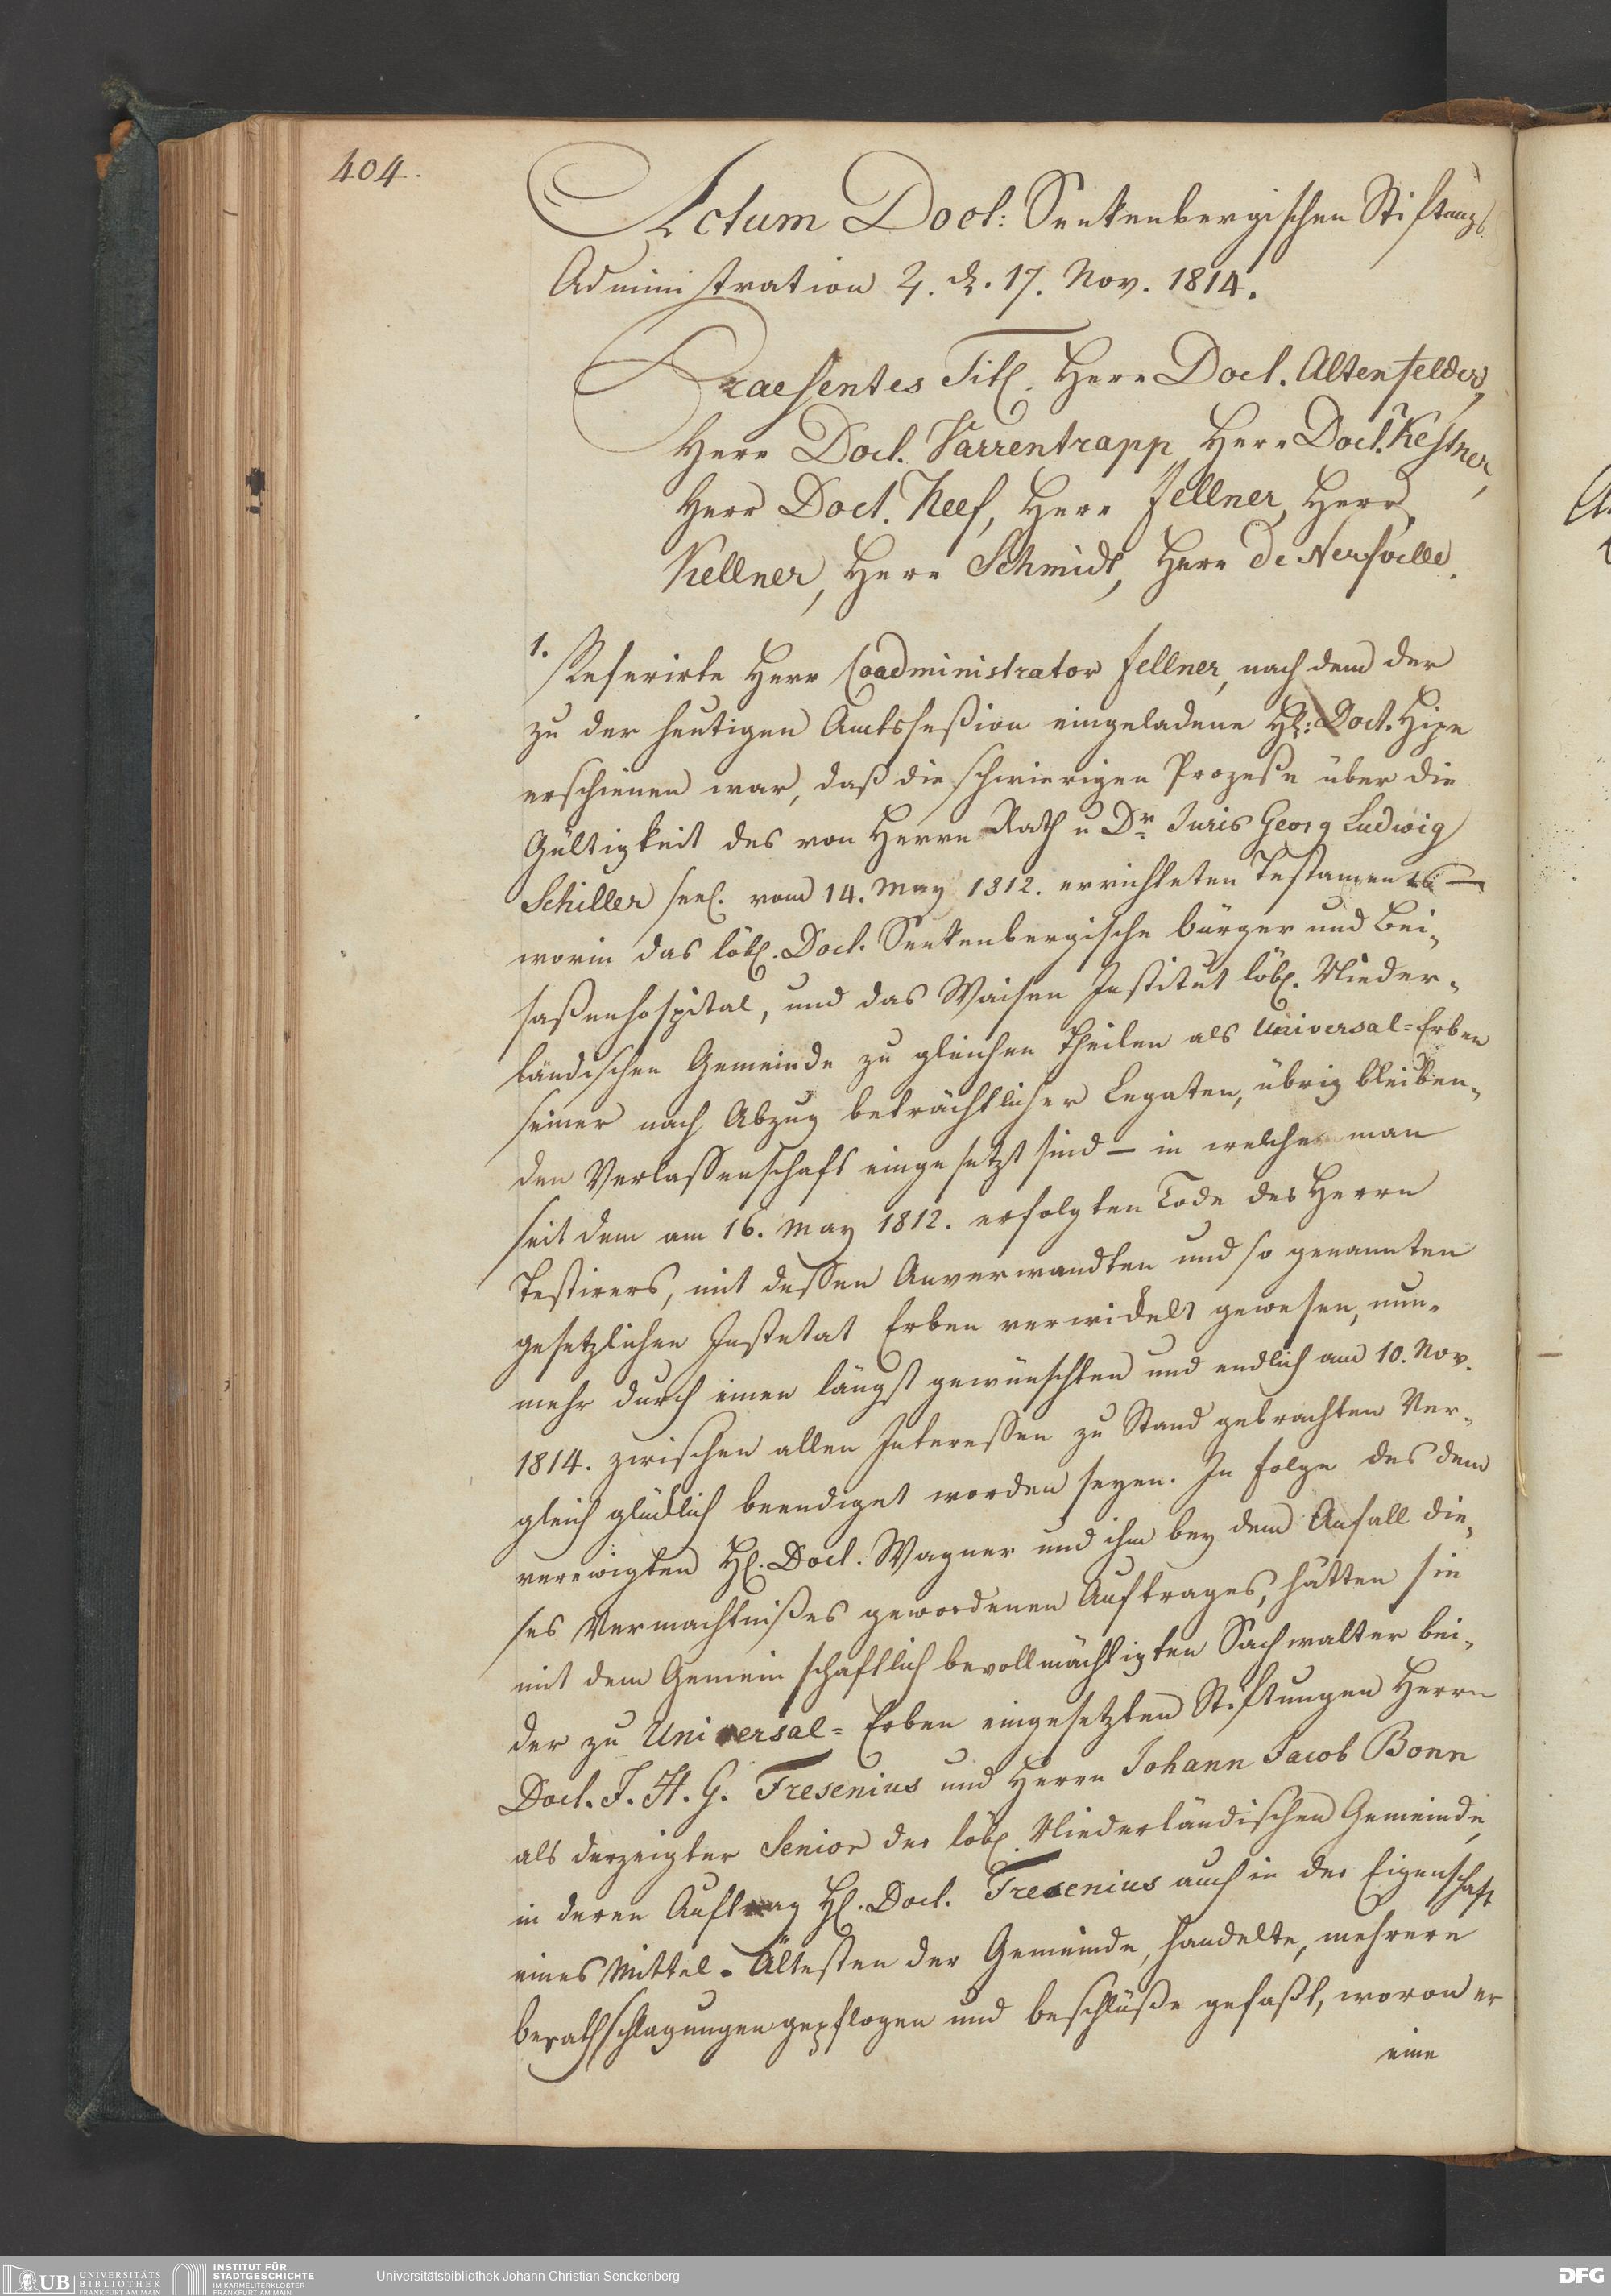 404.
Actum Doct: Senkenbergischen Stiftungs
Administration 4. d. 17. Nov. 1814.
Praesentes Titl. Herr Doct. Altenfelder,
Herr Doct. Varrentrapp, Herr Doct. Kestner,
Herr Doct. Neef, Herr Fellner, Herr
Kellner, Herr Schmidt, Herr De Neufville.
1. Referirte Herr Coadministrator Fellner, nach dem der
zu der heutigen Amtsseßion eingeladene Hl: Doct.
erschienen war, daß die schwierigen Prozeße über die
Gültigkeit des von Herrn Rath u Dr. Juris Georg Ludwig
Schiller seel. vom 14. May 1812. errichteten Testaments —
worin das löbl. Doct. Senkenbergische bürger und Bei-
saßenhospital, und das Waisen Institut löbl. Nieder-
ländischen Gemeinde zu gleichen Theilen als Universal=Erben
seiner nach Abzug beträchtlicher Legaten, übrig bleiben-
den Verlassenschaft eingesetzt sind — in welche man
seit dem am 16. May 1812. erfolgten Tode des Herrn
Testirers, mit dessen Anverwandten und so genannten
gesetzlichen Instetat Erben verwickelt gewesen, nun-
mehr durch einen längst gewünschten und endlich am 10. Nov.
1814. zwischen allen Interessen zu Stand gebrachten Ver-
gleich glücklich beendiget worden seyen. In folge des dem
verewigten Hl. Doct. Wagner und ihm bey dem Anfall die-
ses Vermächtnißes gewordenen Auftrages, hätten sie
mit dem Gemeinschaftlich bevollmächtigten Sachwalter bei-
der zu Universal=Erben eingesetzten Stiftungen Herrn
Doct. J. H. G. Fresenius und Herrn Johann Jacob Bonn
als derzeigter Senior der löbl. Niederländischen Gemeinde,
in deren Auftrag Hl. Doct. Fresenius auch in der Eigenschaft
eines Mittel-Ältesten der Gemeinde, handelte, mehrere
berathschlagungen gepflogen und beschlüße gefaßt, wovon er
eine
UB UNIVERSITÄTS
BIBLIOTHEK
FRANKFURT AM MAIN
INSTITUT FÜR
STADTGESCHICHTE
IM KARMELITERKLOSTER
FRANKFURT AM MAIN
Universitätsbibliothek Johann Christian Senckenberg
DFG